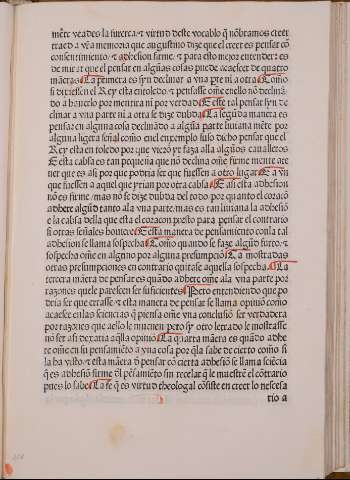 mẽte veades la fuerça: ⁊ virtud deste vocablo q̃ nõbramos creer
traed a vr̃a memoria que augustino dize que el creer es pensar cõ
consentimiẽto: ⁊ adhesion firme. ⁊ para esto mejor entender: es
de mirar que el pensar en algũas cosas puede acaescer de quatro
mãeras. La primera es syn declinar a vna ꝑte ni a otra. Como
si dixessen el Rey esta en toledo: ⁊ pensasse om̃e en ello nõ declinã
do a hauerlo por mentira ni por verdad. E este tal pensar syn de
clinar a vna parte ni a otra se dize dubda. La segũda manera es
pensar en alguna cosa declinãdo a algũa parte liuiana mẽte por
alguna ligera señal como en el enxemplo suso dicho pensar que el
Rey esta en toledo por que vierõ yr faza alla algũos caualleros
E esta cabsa es tan pequeña que nõ declina om̃e firme mente a te
ner que es asi por que podria ser que fuessen a otro lugar. E a vn
que fuessen a aquel que yrian por otra cabsa. E asi esta adhesion
nõ es firme/ mas nõ se dize dubda del todo por quanto el coraçõ
adhere algũd tanto ala vna parte/ mas es tan liuiana la adhesiõ
e la cabsa della que esta el coraçon presto para pensar el contrario
si otras señales houiere. E esta manera de pensamiento con la tal
adhesion se llama sospecha. Como quando se faze algũd furto/ ⁊
sospecha om̃e en alguno por alguna presumpciõ. Ca mostradas
otras presumpciones en contrario quitase aquella sospecha. La
tercera mãera de pensar es quãdo adhere om̃e ala vna parte por
razones que le parescen ser suficientes. Pero entendiendo que po
dria ser que errasse/ ⁊ esta manera de pensar se llama opiniõ como
acaesce en las sciencias q̃ piensa om̃e vna conclusiõ ser verdadera
por razones que a ello le mueuen pero sy otro letrado le mostrasse
nõ ser asi dexaria aq̃lla opiniõ. La quarta mãera es quãdo adhe
re om̃e en su pensamiẽto a vna cosa por q̃ la sabe de cierto como si
la ha visto/ ⁊ esta mãera d̃ pensar cõ cierta adhesiõ se llama sciẽcia
q̃ es adhesiõ firme d̃l pẽsamiẽto sin recelar q̃ le muestrẽ el cõtrario
pues lo sabe. La fe q̃ es virtud theologal cõsiste en creer lo necesa
rio a